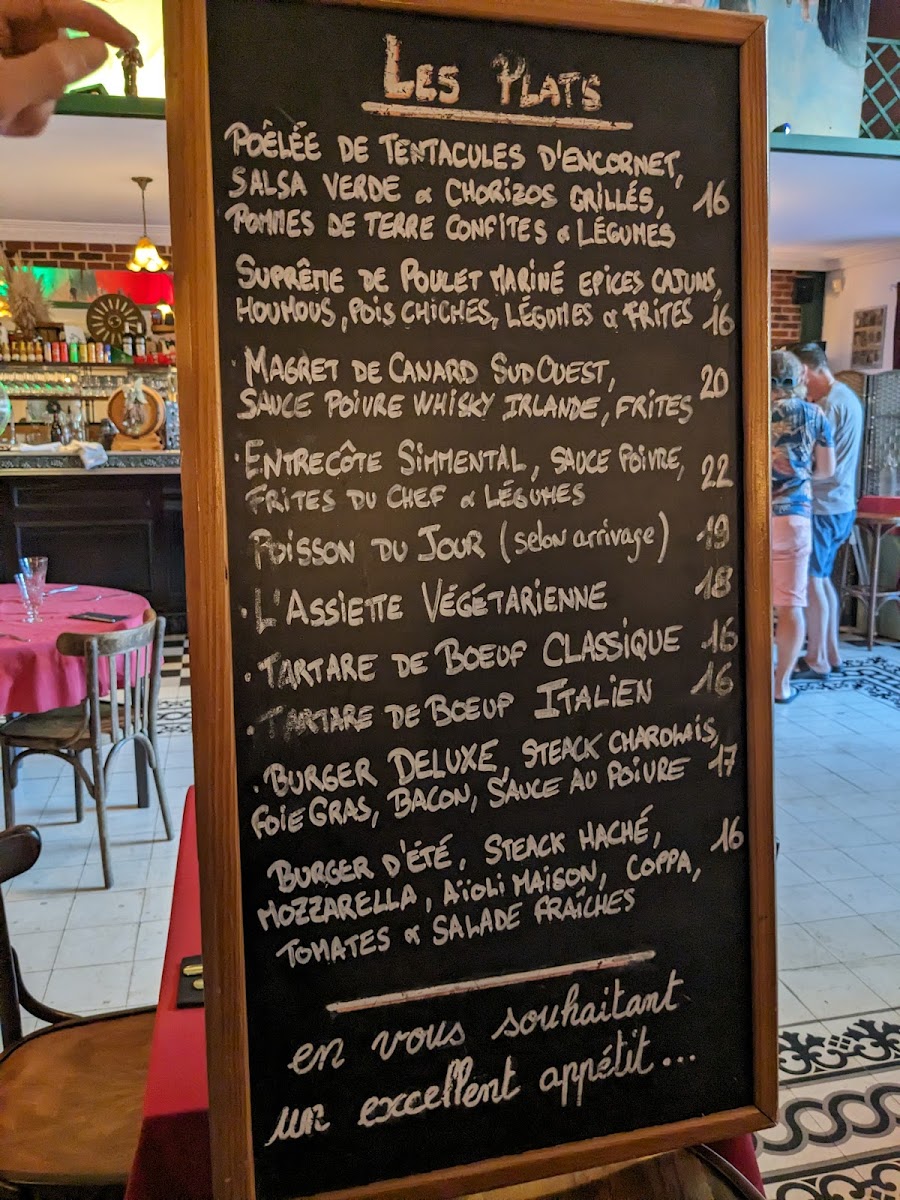 LES PLATS
POÊLÉE DE TENTACULES D'ENCORNET,
SALSA VERDE & CHORIZOS GRILLÉS, 16
POMMES DE TERRE CONFITES & LÉGUMES
SUPRÊME DE POULET MARINÉ EPICES CAJUNS,
HOUMOUS, POIS CHICHES, LÉGUMES & FRITES 16
· MAGRET DE CANARD SUD OUEST, 20
SAUCE POIVRE WHISKY IRLANDE, FRITES
· ENTRECÔTE SIMMENTAL, SAUCE POIVRE, 22
FRITES DU CHEF & LÉGUMES
POISSON DU JOUR (selon arrivage) 19
· L'ASSIETTE VÉGÉTARIENNE 18
· TARTARE DE BOEUF CLASSIQUE 16
· TARTARE DE BOEUF ITALIEN 16
· BURGER DELUXE, STEACK CHAROLAIS,
FOIE GRAS, BACON, SAUCE AU POIVRE 17
BURGER D'ÉTÉ, STEACK HACHÉ, 16
MOZZARELLA, AÏOLI MAISON, COPPA,
TOMATES & SALADE FRAÎCHES
en vous souhaitant
un excellent appétit...